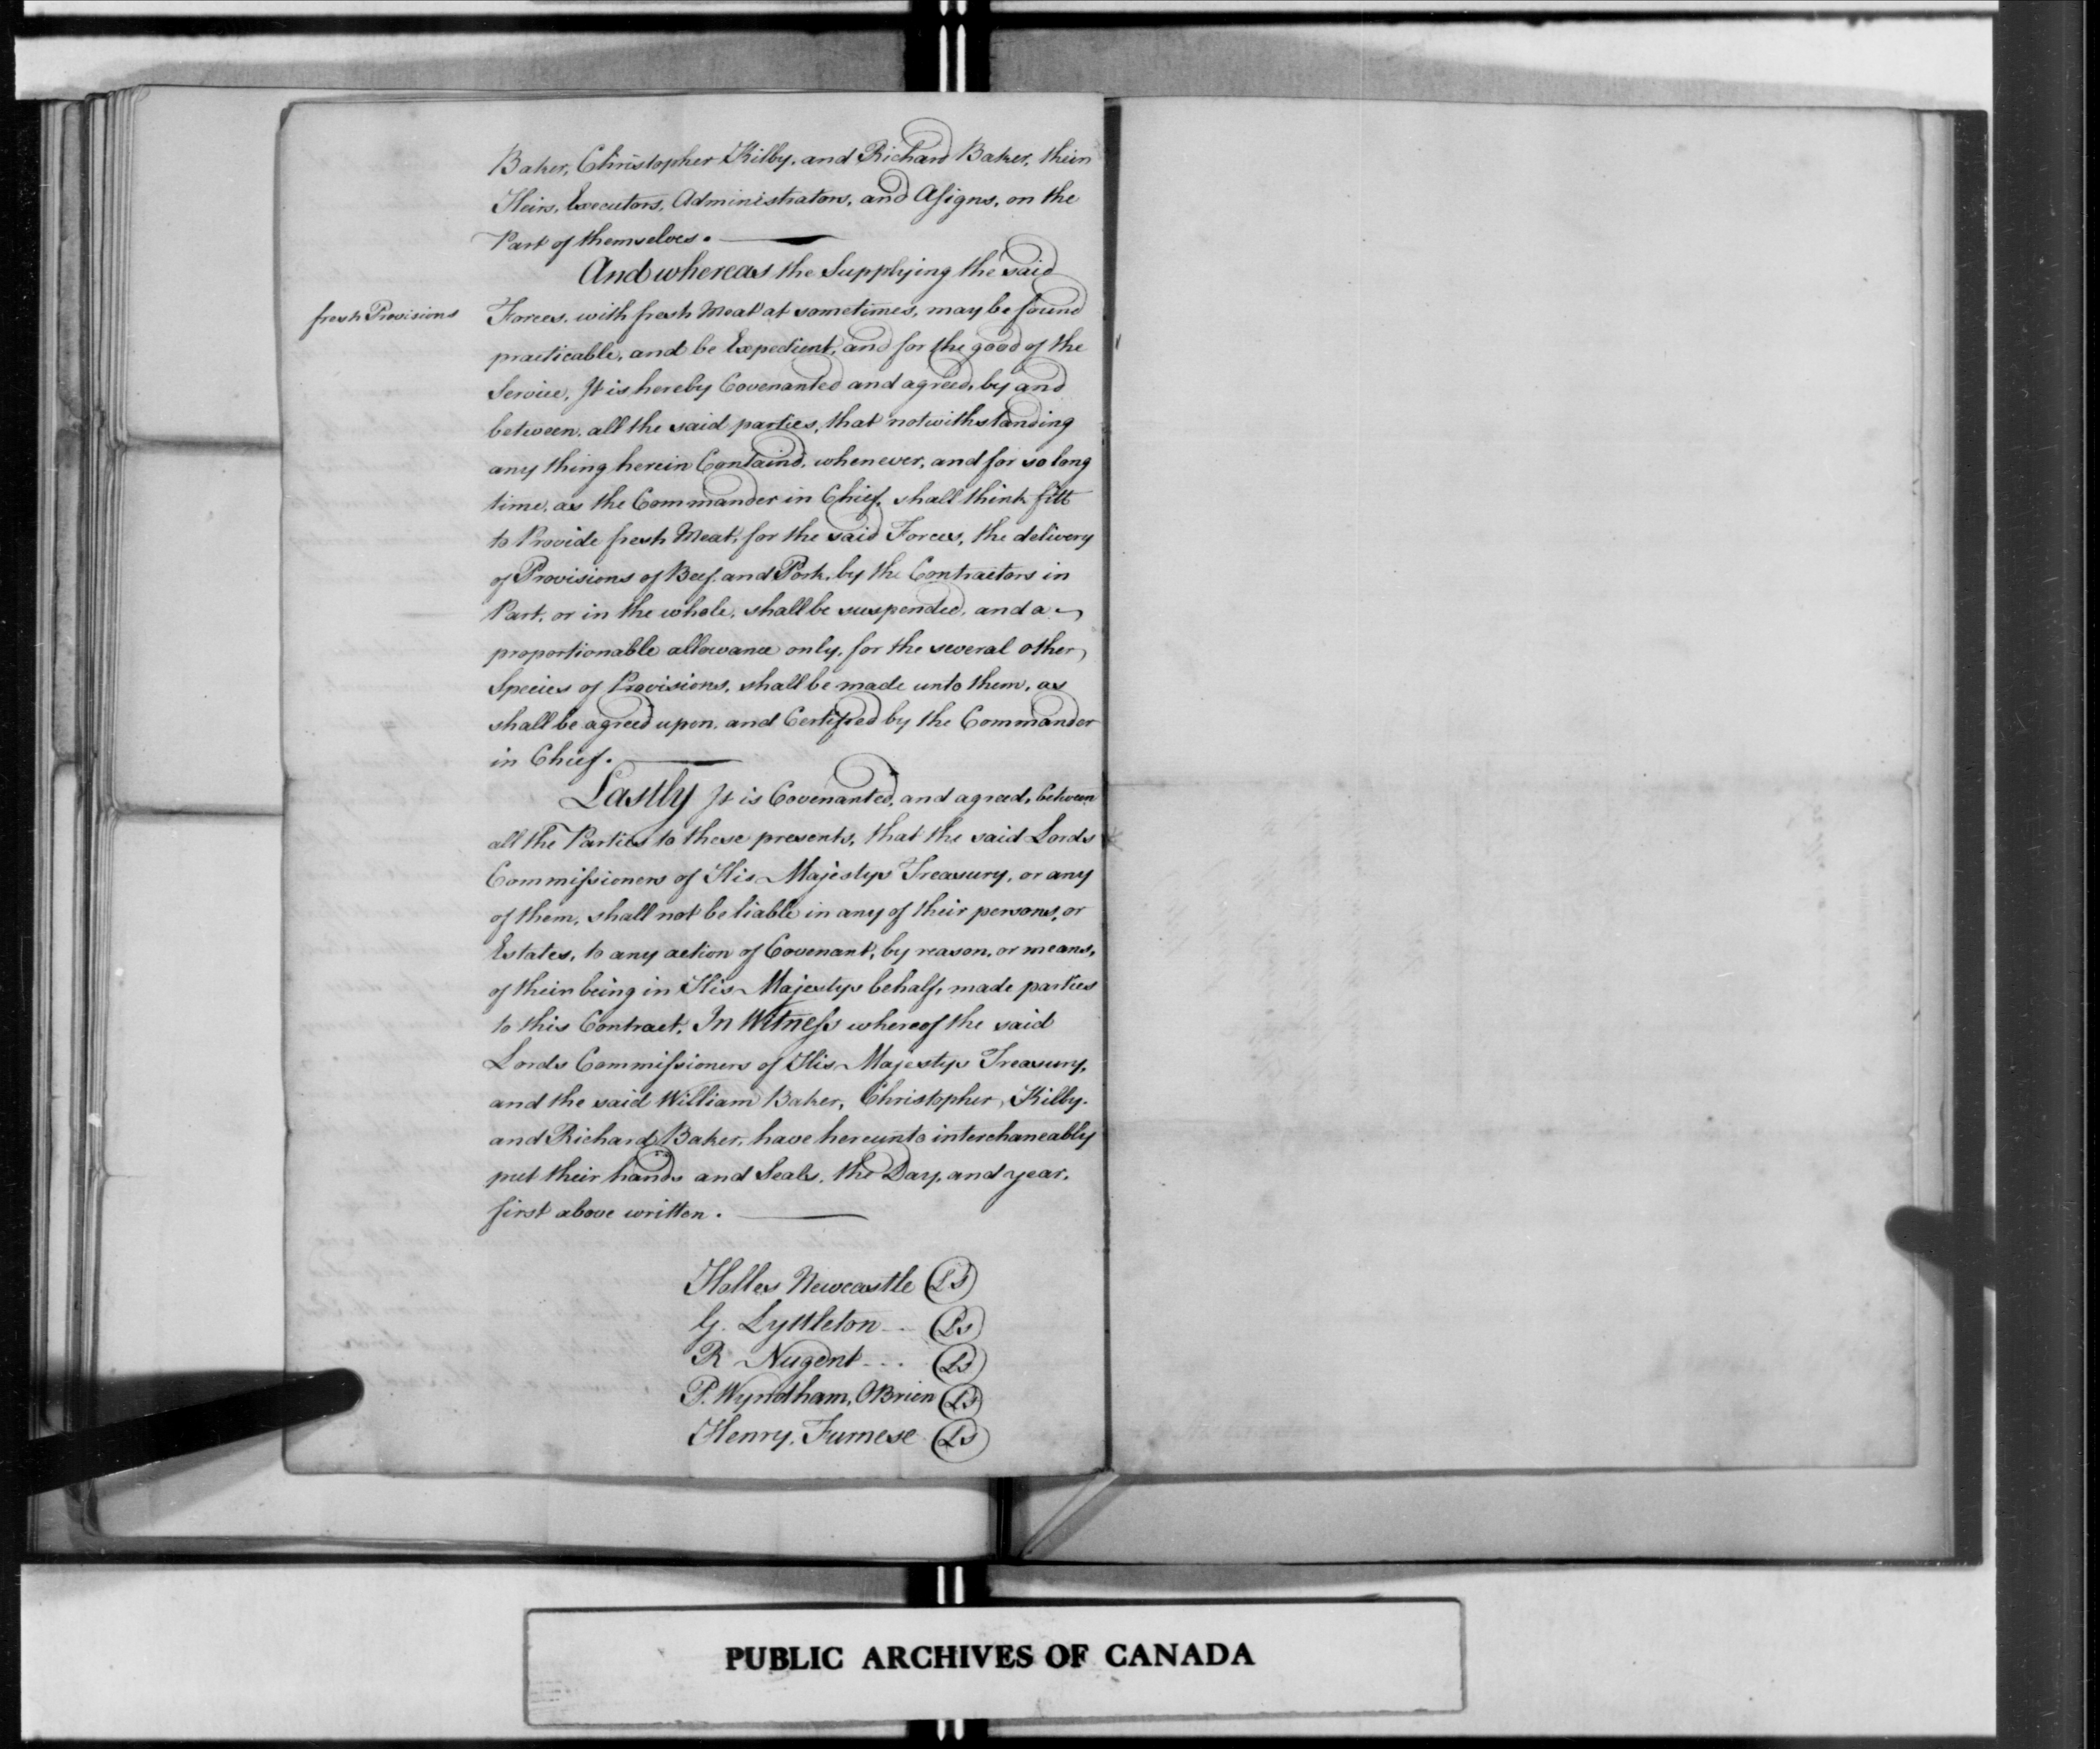 Baker, Christopher Kilby, and Richard Baker, their
Heirs, Executors, Administrators, and Assigns, on the
Part of themselves.
And whereas the Supplying the said
fresh Provisions
Forces, with fresh Meat at sometimes, may be found
practicable, and be Expedient, and for the good of the
Service, It is hereby Covenanted and agreed, by and
between, all the said parties, that notwithstanding
any thing herein Containd, whenever, and for so long
time, as the Commander in Chief, shall think fitt
to Provide fresh Meat, for the said Forces, the delivery
of Provisions of Beef, and Pork, by the Contractors in
Part, or in the whole, shall be suspended, and a
proportionable allowance only, for the several other
Species of Provisions, shall be made unto them, as
shall be agreed upon, and Certifyed by the Commander
in Chief.
Lastly It is Covenanted, and agreed, between
all the Parties to these presents, that the said Lords
Commissioners of His Majestys Treasury, or any
of them, shall not be liable in any of their persons, or
Estates, to any action of Covenant, by reason, or means,
of their being in His Majestys behalf, made parties
to this Contract. In Witness whereof the said
Lords Commissioners of His Majestys Treasury,
and the said William Baker, Christopher Kilby,
and Richard Baker, have hereunto interchaneably
put their hands and Seals, the Day, and year,
first above written.
Holles Newcastle Ls
G. Lyttleton Ls
R Nugent Ls
P. Wyndham, OBrien Ls
Henry, Furnese Ls
PUBLIC ARCHIVES OF CANADA